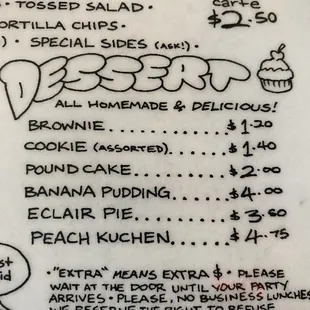 · TOSSED SALAD ·
carte
$2.50
ORTILLA CHIPS ·
) · SPECIAL SIDES (ASK!) ·
DESSERT
ALL HOMEMADE & DELICIOUS!
BROWNIE............ $1.20
COOKIE (ASSORTED)....... $1.40
POUND CAKE.......... $2.00
BANANA PUDDING....... $4.00
ECLAIR PIE.......... $3.50
PEACH KUCHEN....... $4.75
· "EXTRA" MEANS EXTRA $ · PLEASE
WAIT AT THE DOOR UNTIL YOUR PARTY
ARRIVES · PLEASE, NO BUSINESS LUNCHES
WE RESERVE THE RIGHT TO REFUSE